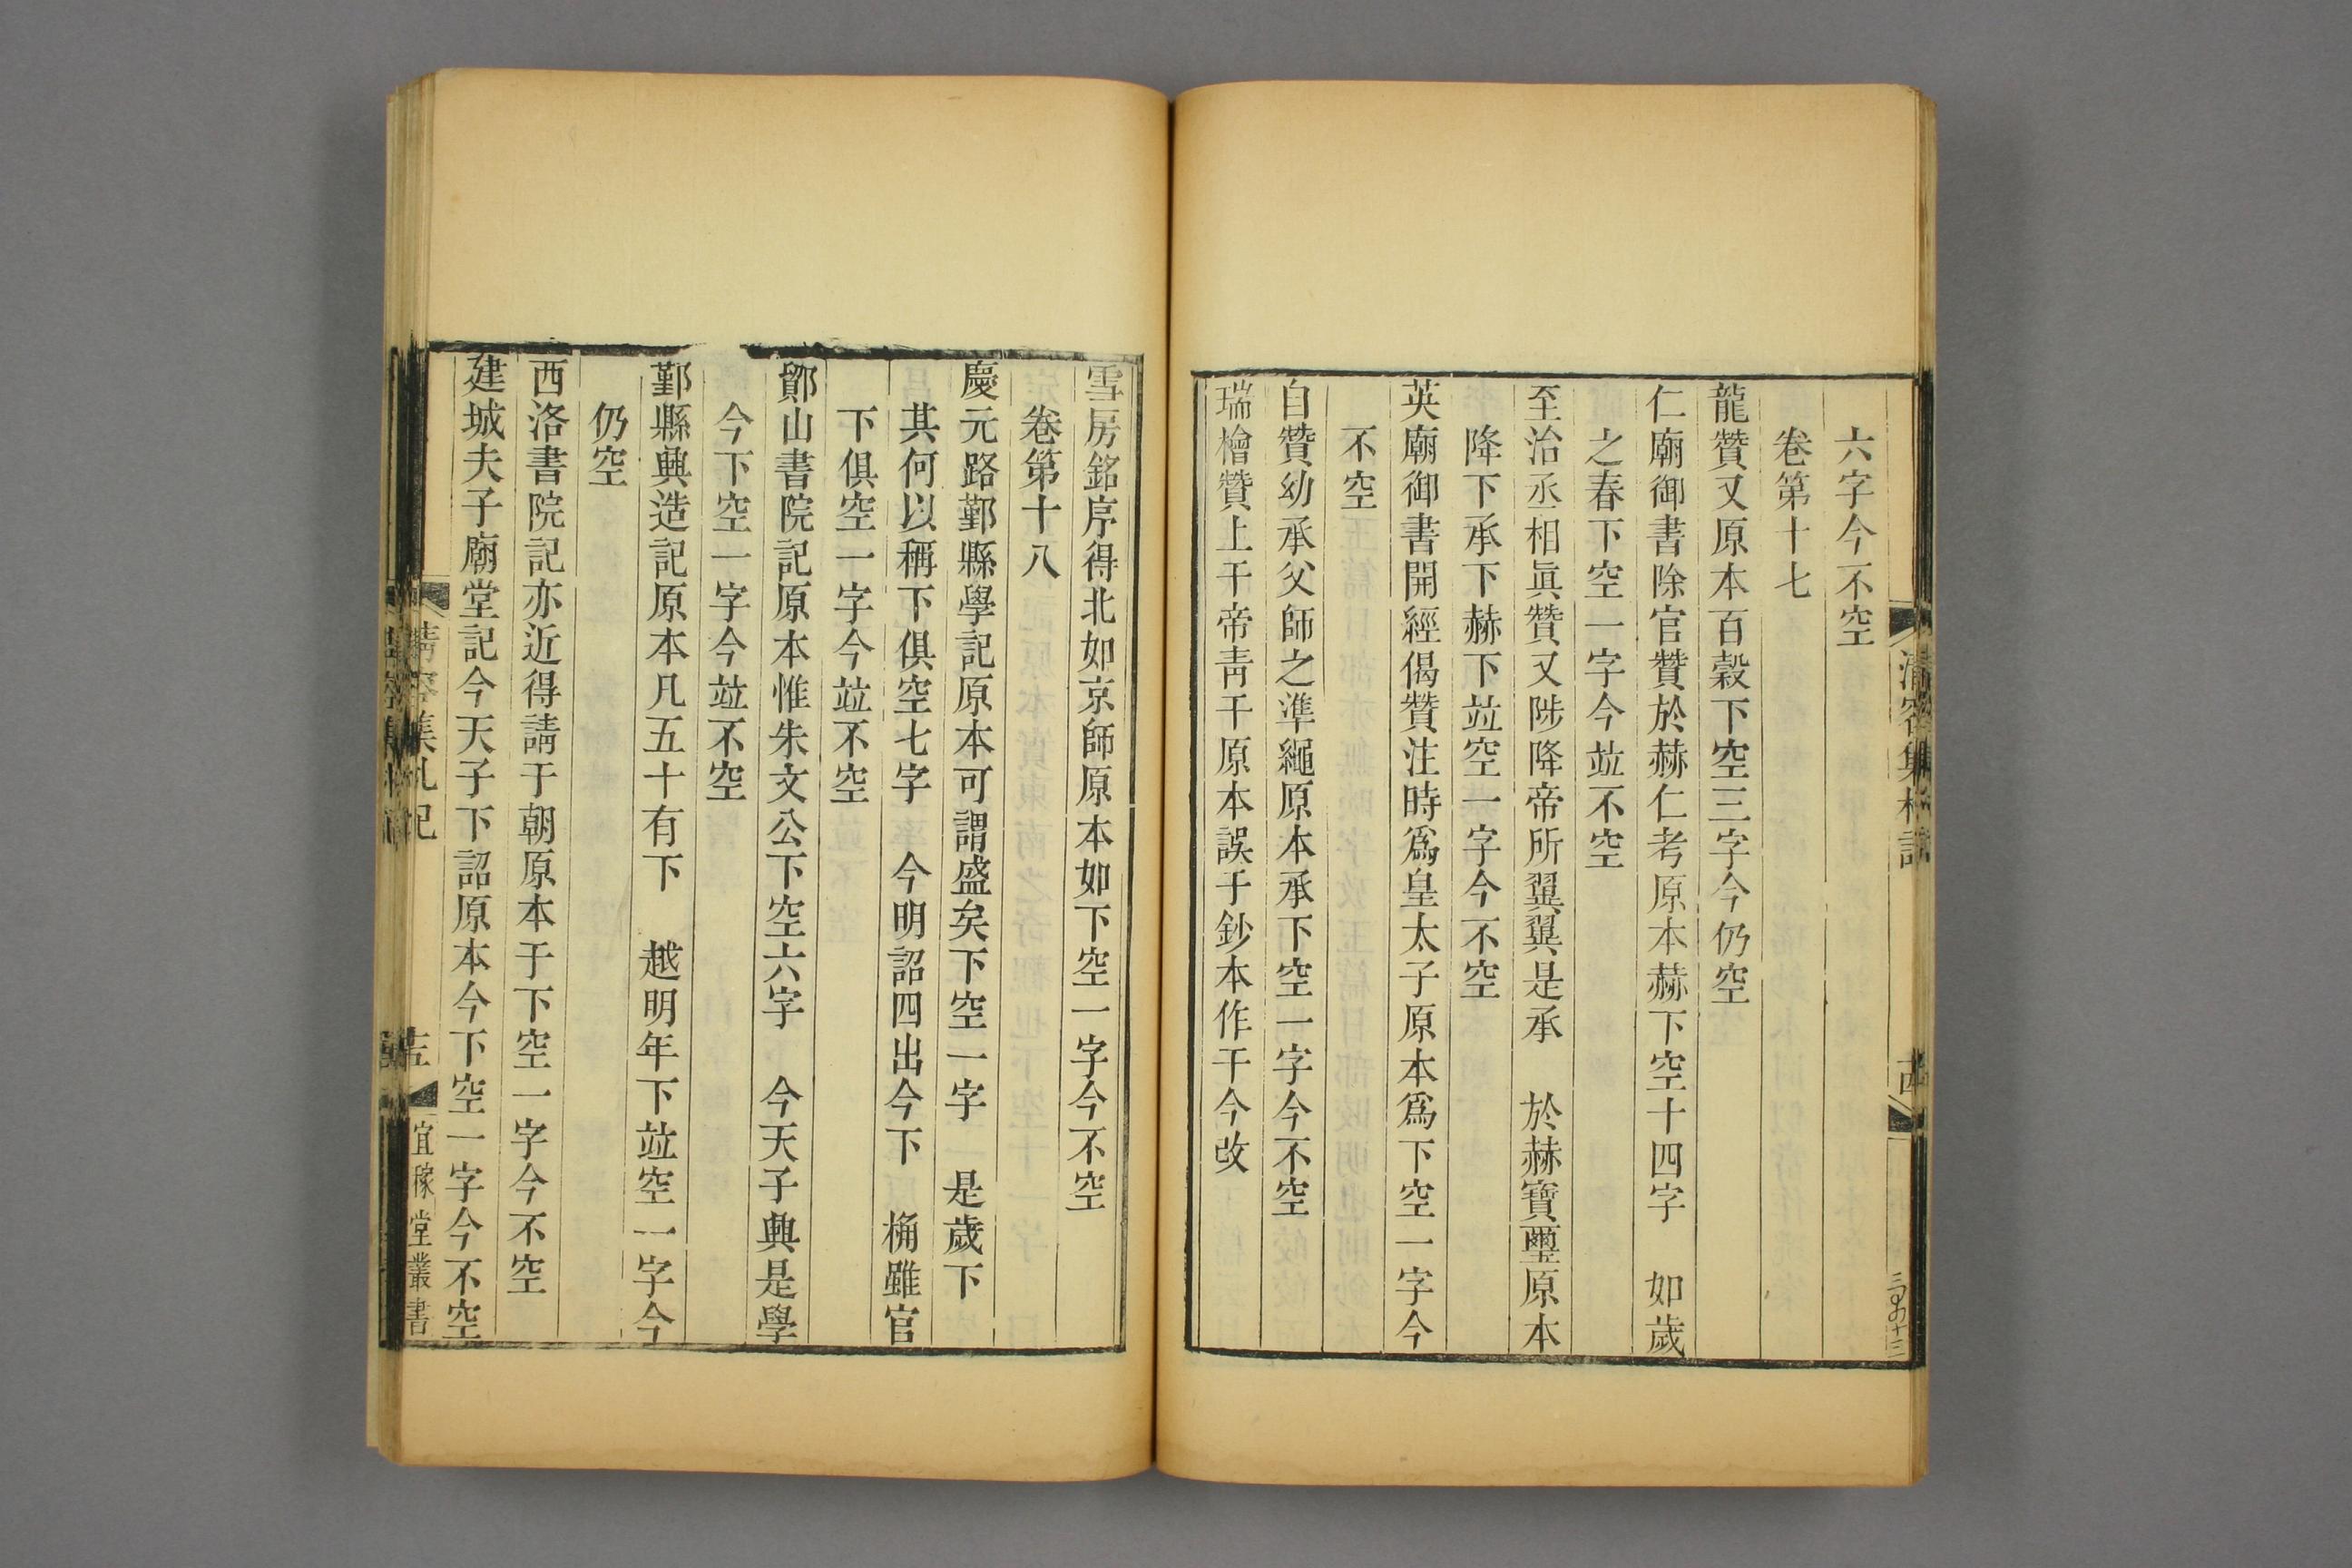 六字今不空
卷第十七
龍贊又原本百榖下空三字今仍空
仁廟御書除官贊於赫仁考原本赫下空十四字　如歲
之春下空一字今竝不空
至治丞相眞贊又陟降帝所翼翼是承　於赫寶璽原本
降下承下赫下竝空一字今不空
英廟御書開經偈贊注時爲皇太子原本爲下空一字今
不空
自贊幼承父師之準繩原本承下空一字今不空
瑞檜贊上干帝靑干原本誤于鈔本作干今改
雪房銘序得北如京師原本如下空一字今不空
卷第十八
慶元路鄞縣學記原本可謂盛矣下空一字　是歲下
其何以稱下俱空七字　今明詔四出今下　桷雖官
下俱空一字今竝不空
鄮山書院記原本惟朱文公下空六字　今天子興是學
今下空一字今竝不空
鄞縣興造記原本凡五十有下　越明年下竝空一字今
仍空
西洛書院記亦近得請于朝原本于下空一字今不空
建城夫子廟堂記今天子下詔原本今下空一字今不空
清容集札記
宜稼堂叢書